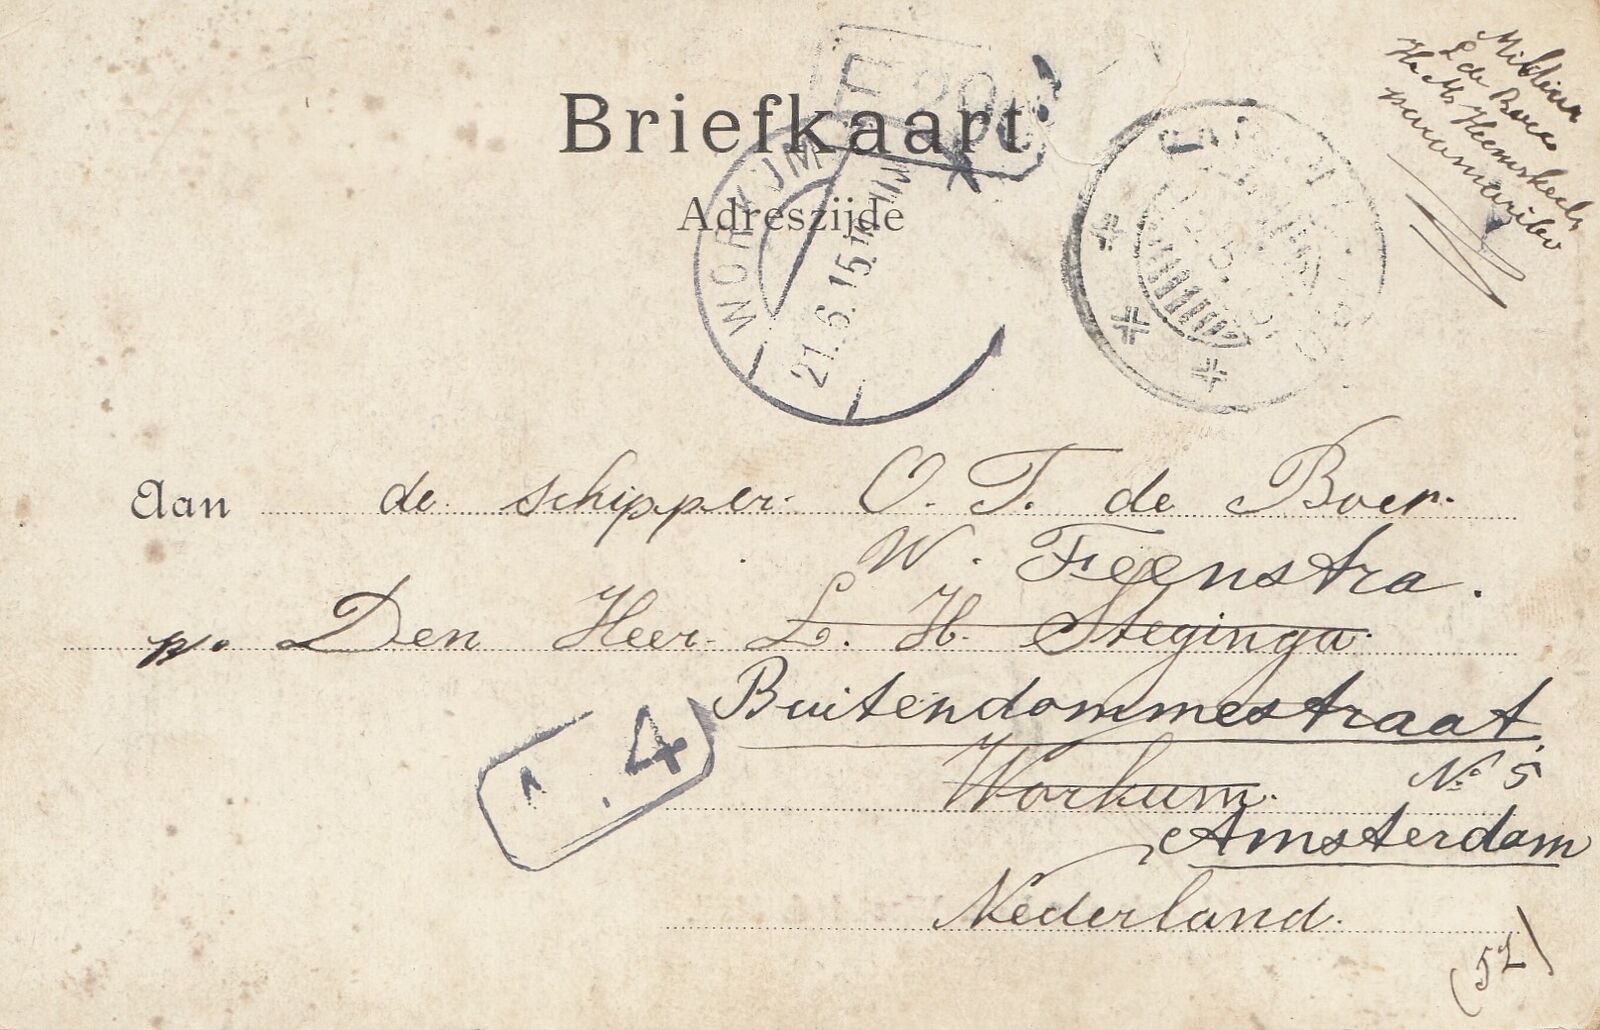 Briefkaart
Adreszijde
WORKUM
21.6.15
Militair
L de Boer
Hr Ms Heemskerk
paramaribo
Aan de schipper O. T. de Boer.
W. Feenstra.
p/o Den Heer L. H. Steginga
Buitendommestraat
Workum. No 5
Amsterdam
Nederland.
4
(52)